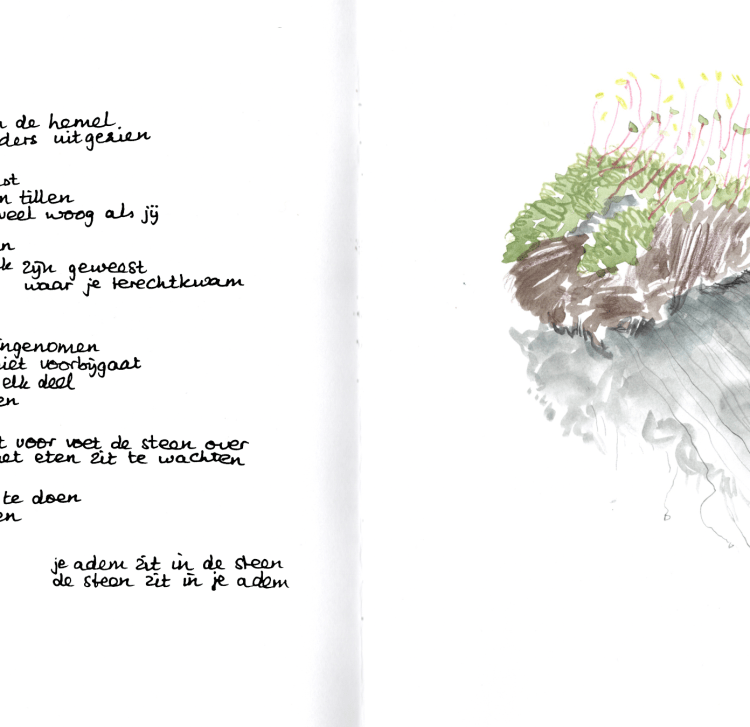 de hemel
ders uitgezien
st
n tillen
veel woog als jij
n
k zijn geweest
waar je terechtkwam
ingenomen
iet voorbijgaat
elk deel
en
t voor voet de steen over
et eten zit te wachten
te doen
en
je adem zit in de steen
de steen zit in je adem